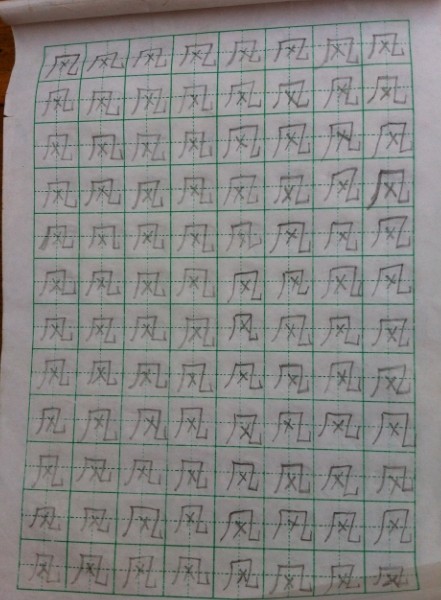 风风风风风风风风
风风风风风风风风
风风风风风风风风
风风风风风风风风
风风风风风风风风
风风风风风风风风
风风风风风风风风
风风风风风风风风
风风风风风风风风
风风风风风风风风
风风风风风风风风
风风风风风风风风